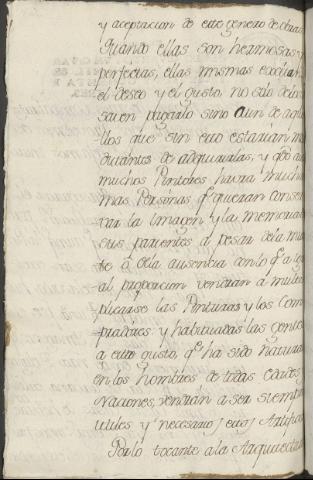 y aceptacion de este genero de obras
Quando ellas son hermosas y
perfectas, ellas mismas exitan
el deseo y el gusto no solo de los
saven pagarlo sino aun de aque
llos que sin esto estarian mui
distantes de adquirirlas, y q.do
muchos Pintores havrá mucha
mas Personas q.e quieran conser
var la Imagen y la memoria
sus parientes á pesar de la mue
te ó de la ausentia con lo q.e a ig
al proporcion vendran á multi
plicarse las Pinturas y los Com
pradores y habituadas las gentes
a este gusto, q.e ha sido natural
en los hombres de todas edades y
Naciones, vendrán a ser siempre
utiles y necesarios estos Artific
Por lo tocante a la Arquitectu